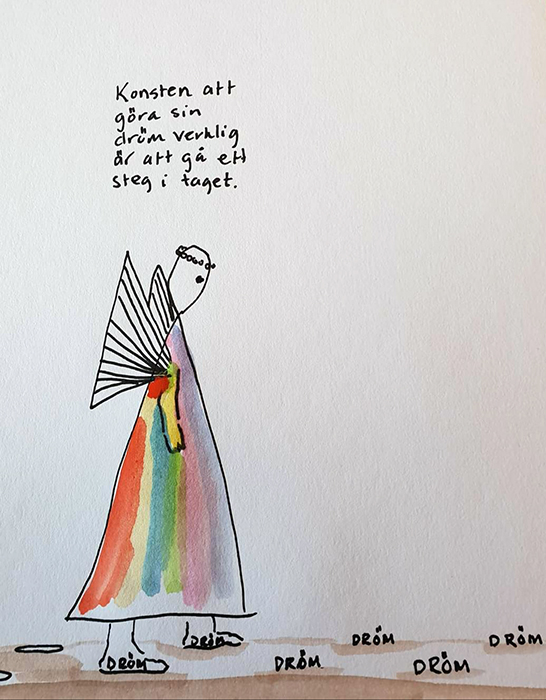 Konsten att
göra sin
dröm verklig
är att gå ett
steg i taget.
DRÖM DRÖM DRÖM
DRÖM DRÖM DRÖM